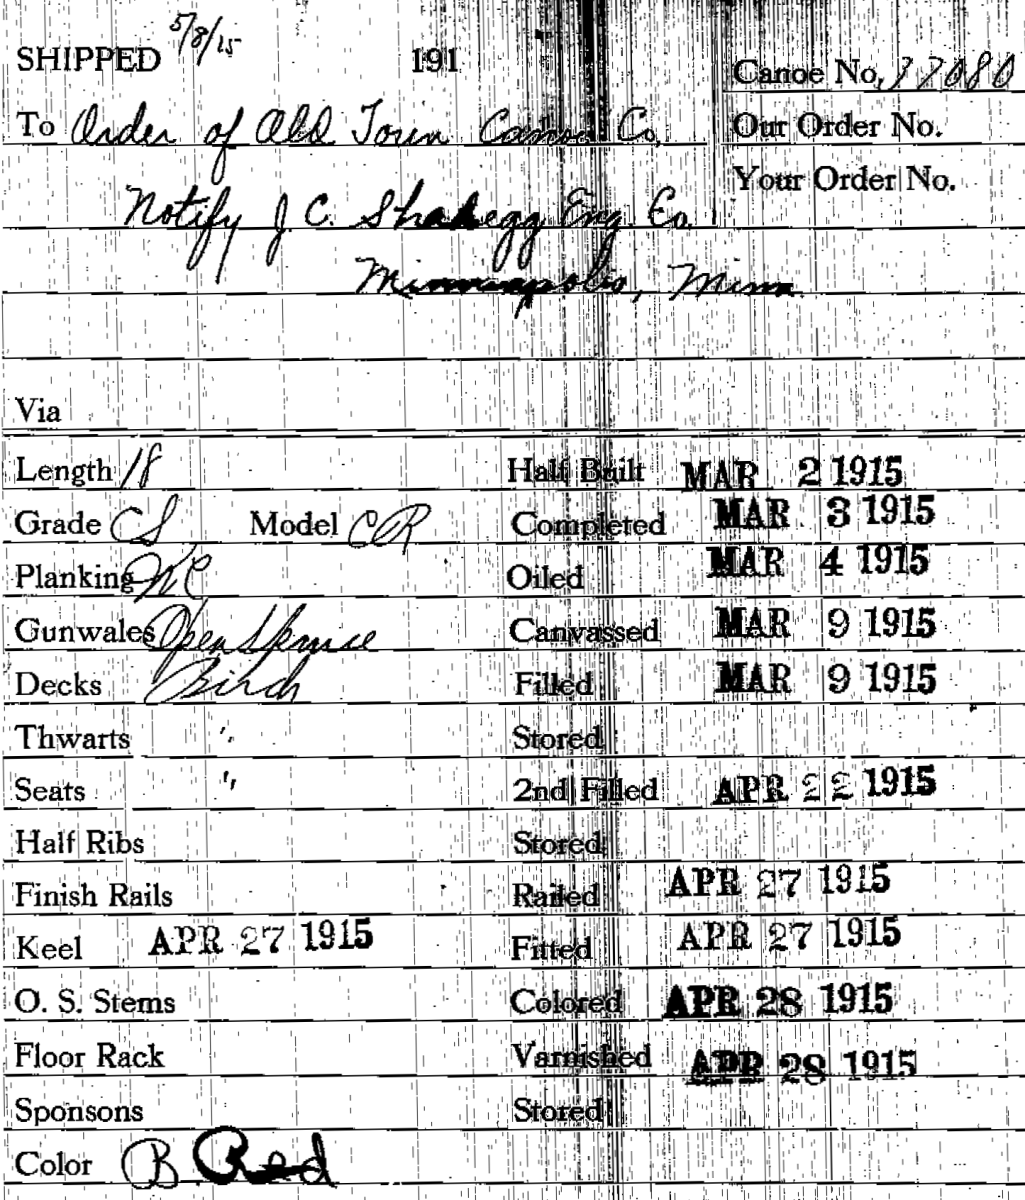 SHIPPED 5/8/15 191
Canoe No. 37080
To Order of Old Town Canoe Co.
Our Order No.
Your Order No.
Notify J C. Eng. Co.
Minneapolis, Minn.
Via
Length 18 Half Built MAR 2 1915
Grade CS Model CR Completed MAR 3 1915
Planking WC Oiled MAR 4 1915
Gunwales Open Spruce Canvassed MAR 9 1915
Decks Birch Filled MAR 9 1915
Thwarts " Stored
Seats " 2nd Filled APR 22 1915
Half Ribs Stored
Finish Rails Railed APR 27 1915
Keel APR 27 1915 Fitted APR 27 1915
O. S. Stems Colored APR 28 1915
Floor Rack Varnished APR 28 1915
Sponsons Stored
Color B. Red